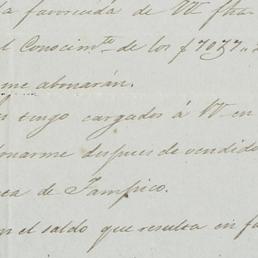 la favorecida de VV fha
l Conocimto de los f 7027
me abonarán.
n tengo cargados á VV en
onarme despues de vendido
ca de Tampico.
n el saldo que resulta en fa